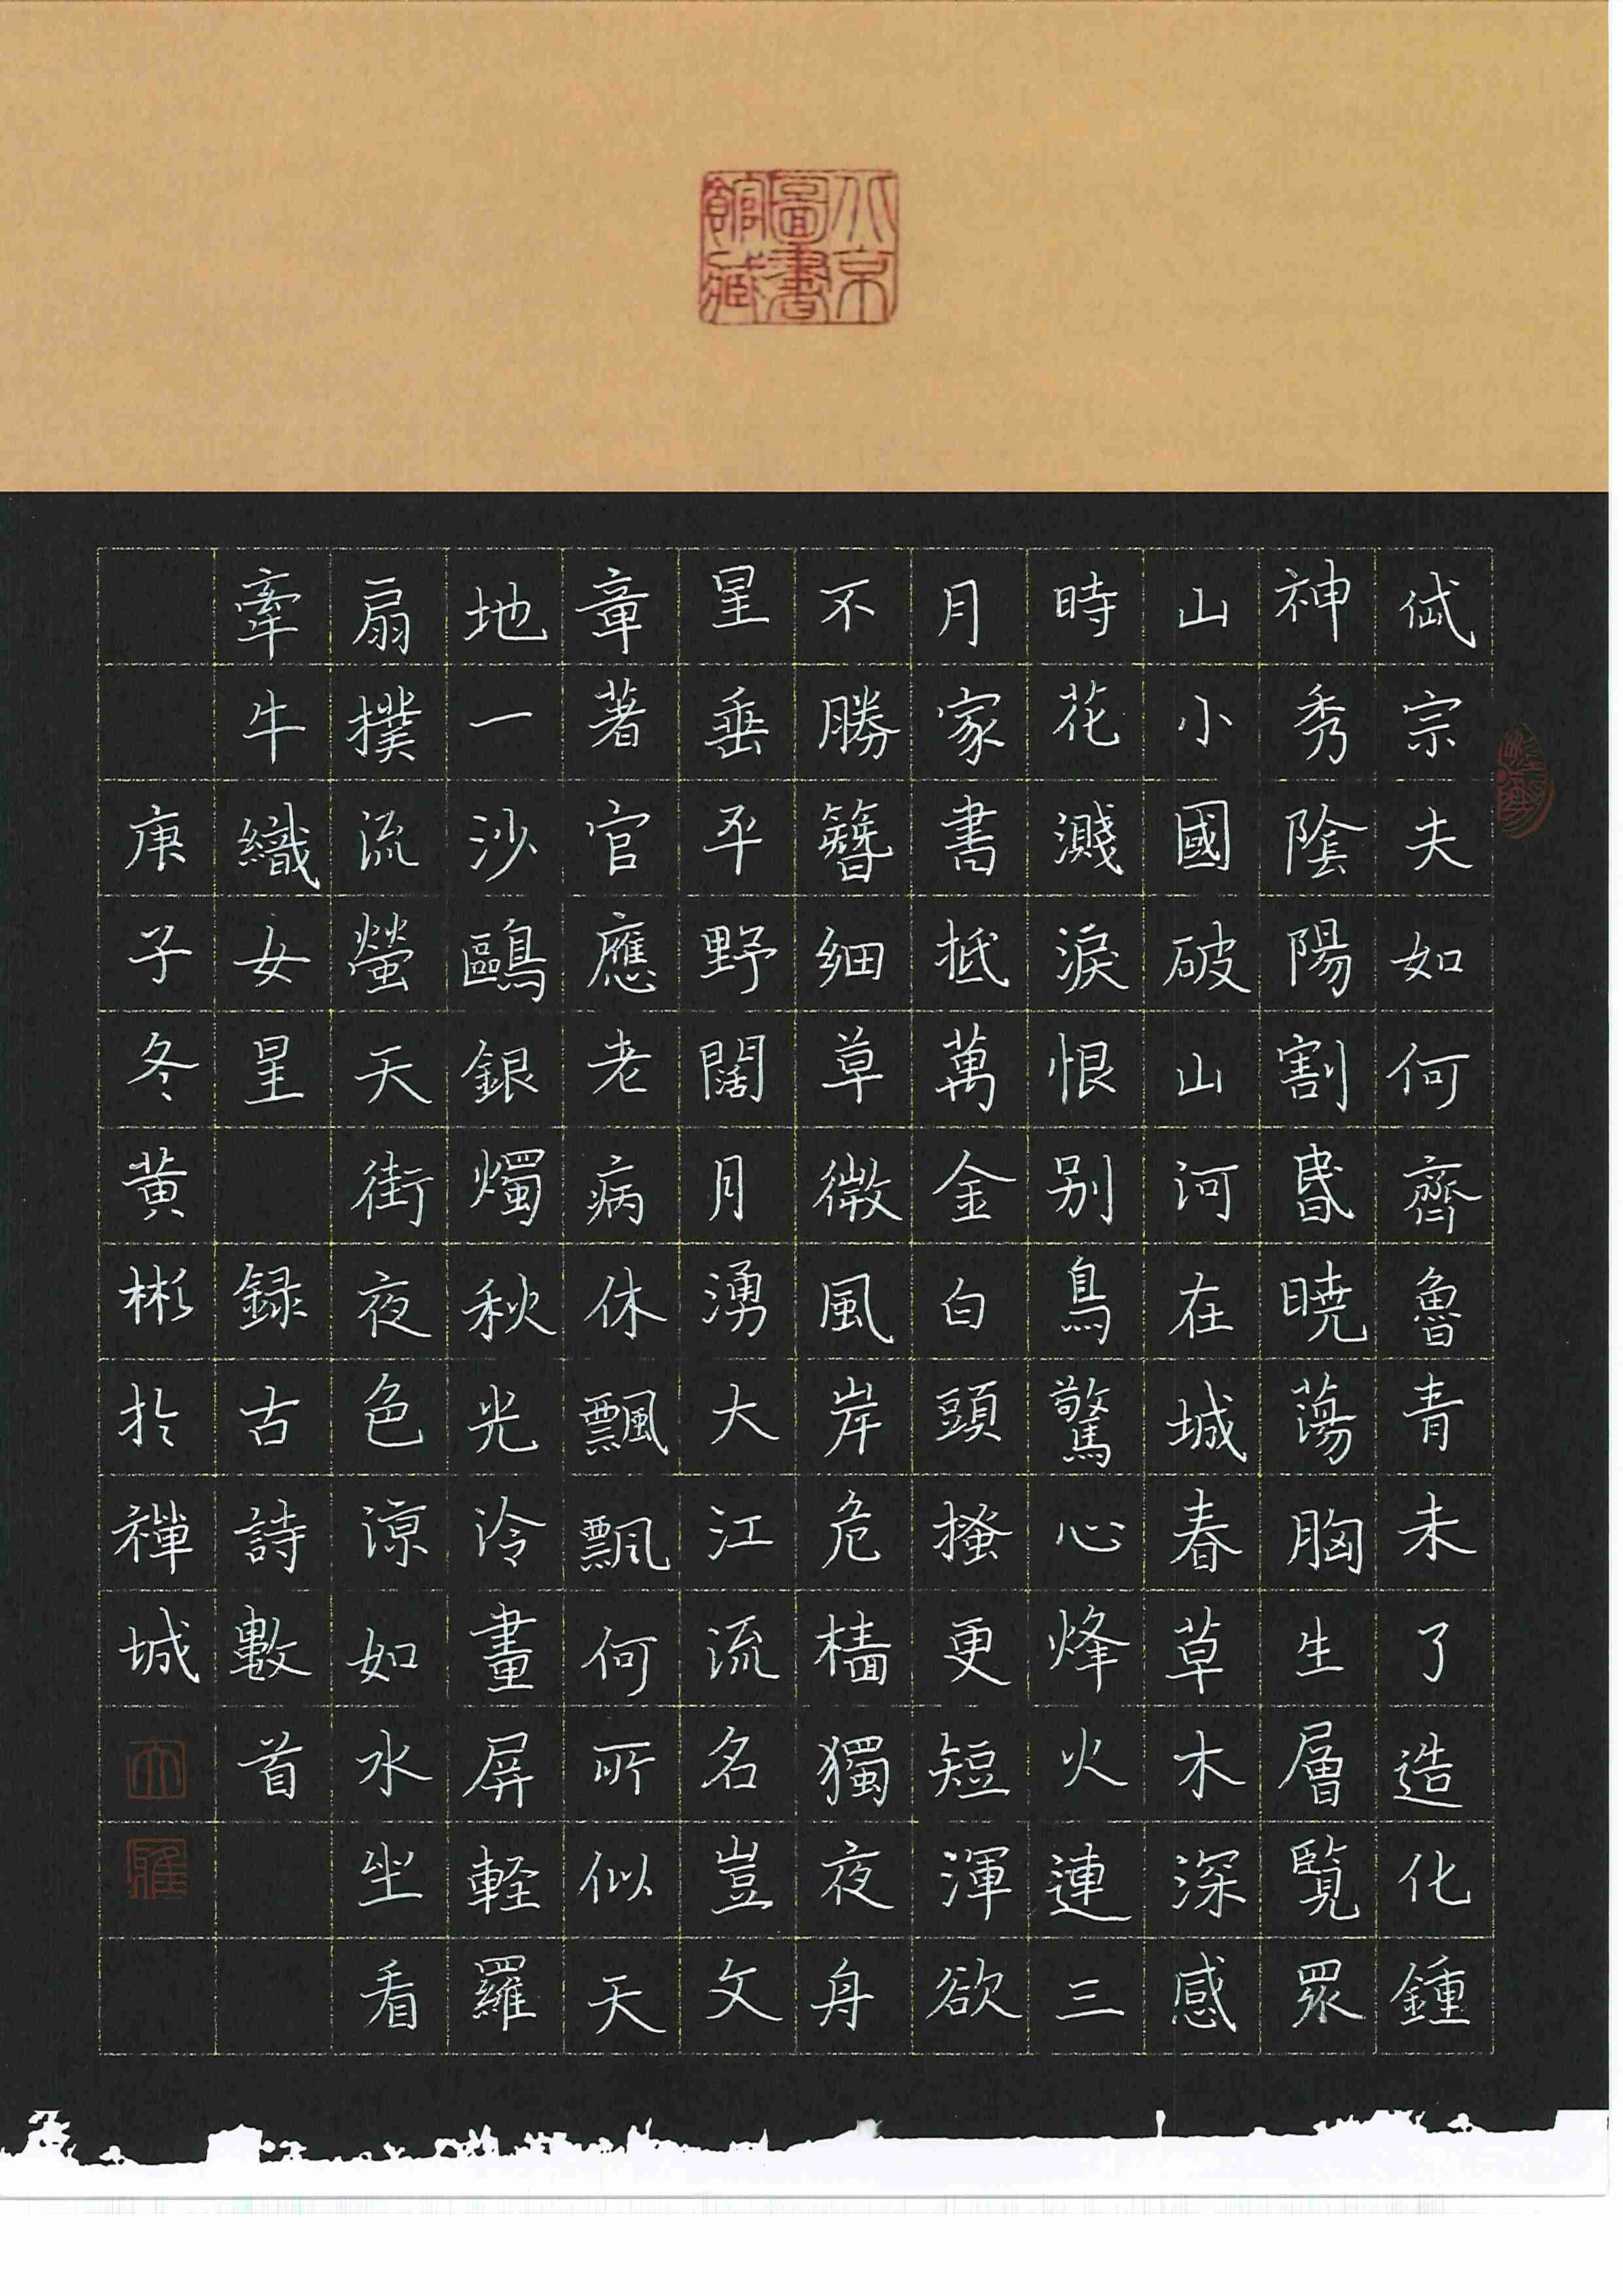 北京圖書館藏
岱宗夫如何齊魯青未了造化鍾
神秀陰陽割昏曉蕩胸生層覽眾
山小國破山河在城春草木深感
時花濺淚恨别鳥驚心烽火連三
月家書抵萬金白頭搔更短渾欲
不勝簪細草微風岸危檣獨夜舟
星垂平野闊月湧大江流名豈文
章著官應老病休飄飄何所似天
地一沙鷗銀燭秋光冷畫屏輕羅
扇撲流螢天街夜色涼如水坐看
牽牛織女星 録古詩數首
庚子冬黄彬於禪城